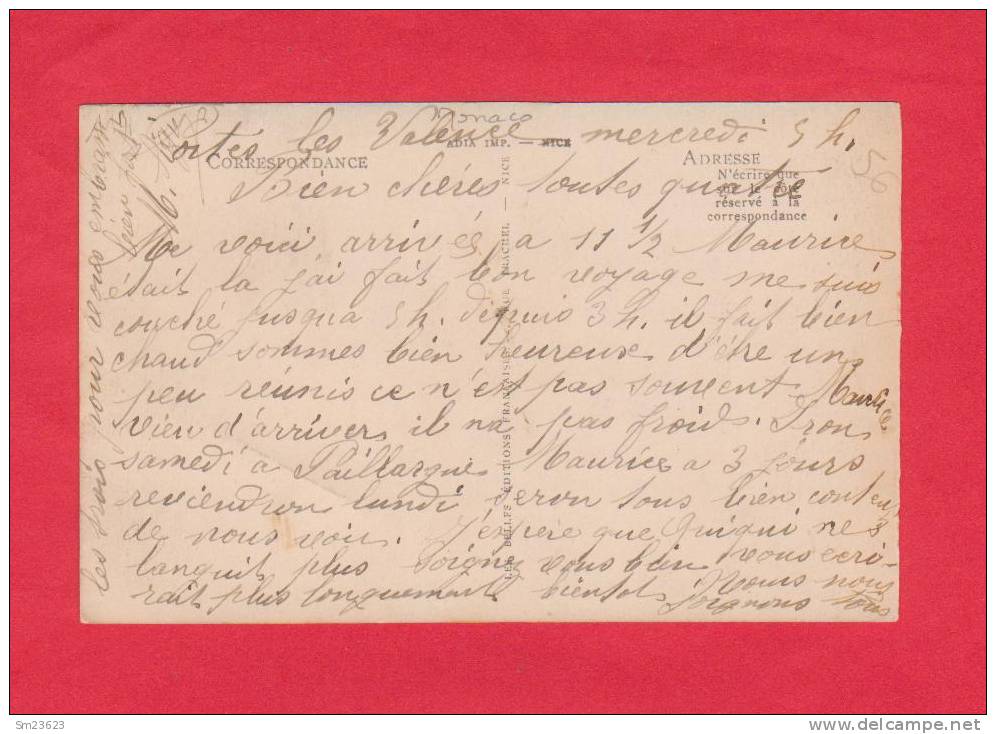 Monaco
Portes les Valence mercredi 5 h.
ADIA IMP. — NICE
CORRESPONDANCE
ADRESSE
N'écrire que
sur le côté
réservé à la
correspondance
56
Bien chères toutes quatre
Me voici arrivée a 11 1/2 Maurice
était la j'ai fait bon voyage me suis
couché jusqua 5h. depuis 3 h. il fait bien
chaud sommes bien heureuse d'être un
peu réunis ce n'est pas souvent Maurice
vien d'arriver il na pas froid. Iron
samedi a Paillargues Maurice a 3 jours
reviendron lundi seron tous bien conten
de nous voir. J'espère que Quiqui ne s
languit plus Soignez vous bien vous écri-
rait plus longuement bientot Nous nous
soignons tous
les trois pour vous embrasse
bien fort
LES BELLES ÉDITIONS FRANÇAISES RUE TRACHEL — NICE
Sm23623
www.delcampe.net